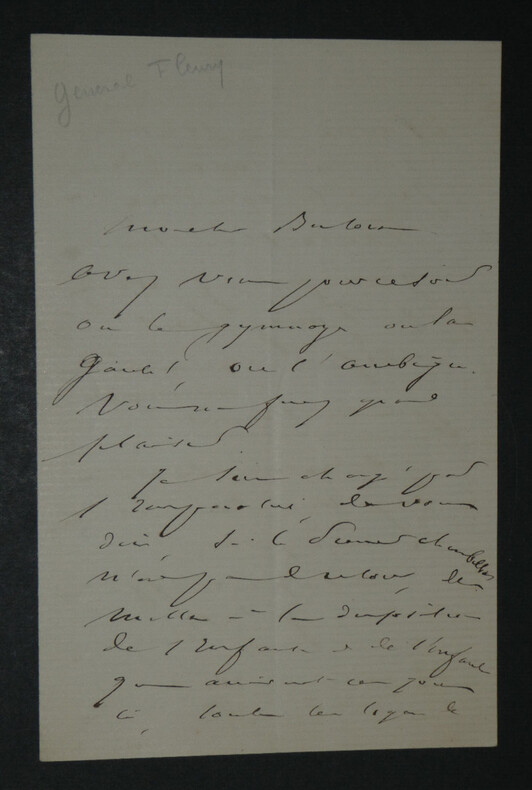 General Fleury
Mon cher
Avez vous pour ce soir
ou le gymnase ou la
Gaité ou l'ambigu.
Vous me ferez grand
plaisir.
Je suis chargé par
l'Impératrice de vous
dire si le Premier chambellan
n'est pas de retour de
mettre à la disposition
de l'Infante & de l'Infant
qui arrivent ces jours
ci, toutes les loges